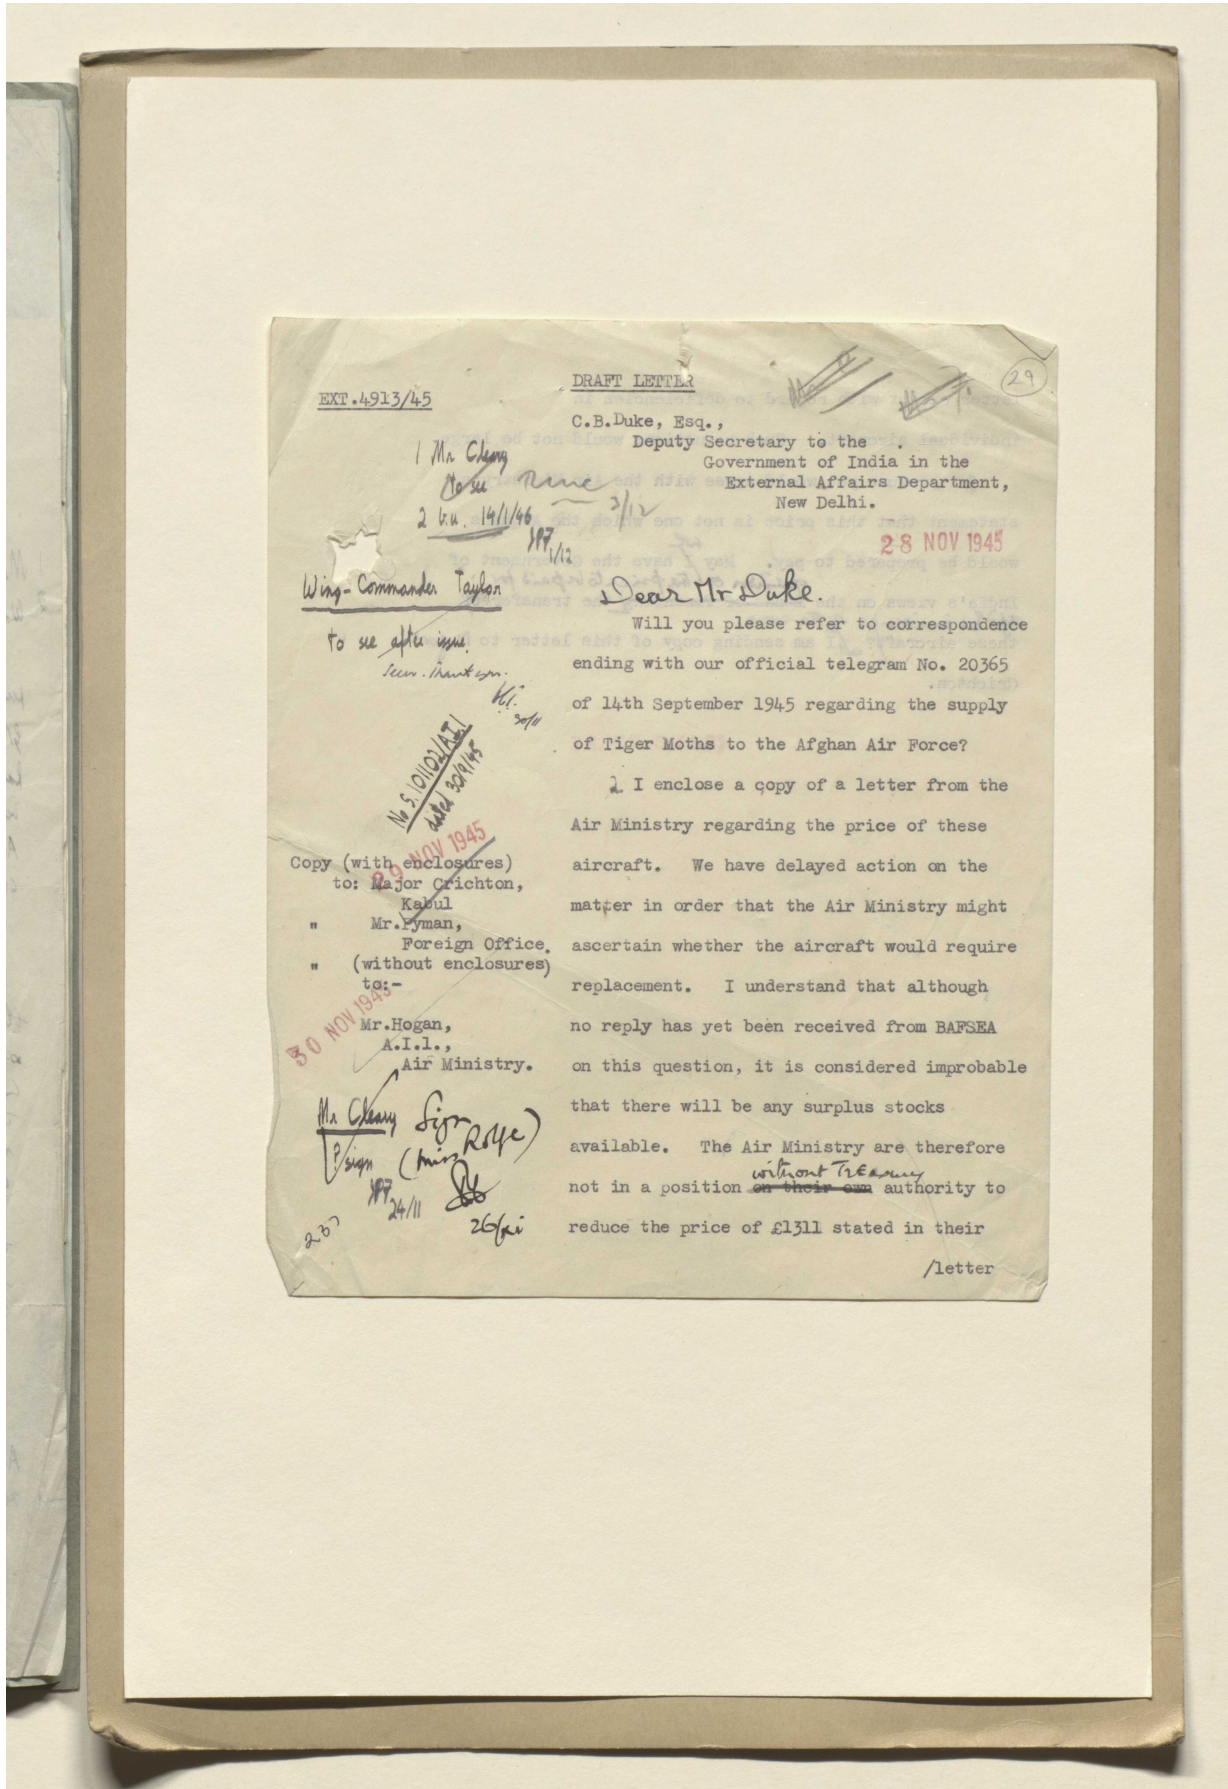 29
DRAFT LETTER
EXT.4913/45
C.B.Duke, Esq.,
Deputy Secretary to the
Government of India in the
External Affairs Department,
New Delhi.
1 Mr Cleary
to see
3/12
2 b.u. 14/1/46
1/12
28 NOV 1945
Wing-Commander Taylor
to see after issue.
Seen. Thank you.
30/11
No S.101102/A.I.1
dated 30/9/45
29 NOV 1945
Copy (with enclosures)
to: Major Crichton,
Kabul
" Mr.Pyman,
Foreign Office.
" (without enclosures)
to:-
30 NOV 1945
Mr.Hogan,
A.I.1.,
Air Ministry.
Mr Cleary
?/sign
24/11
Sign
(Miss Rolfe)
26/xi
237
Dear Mr Duke.
Will you please refer to correspondence
ending with our official telegram No. 20365
of 14th September 1945 regarding the supply
of Tiger Moths to the Afghan Air Force?
2 I enclose a copy of a letter from the
Air Ministry regarding the price of these
aircraft. We have delayed action on the
matter in order that the Air Ministry might
ascertain whether the aircraft would require
replacement. I understand that although
no reply has yet been received from BAFSEA
on this question, it is considered improbable
that there will be any surplus stocks
available. The Air Ministry are therefore
without Treasury
not in a position on their own authority to
reduce the price of £1311 stated in their
/letter